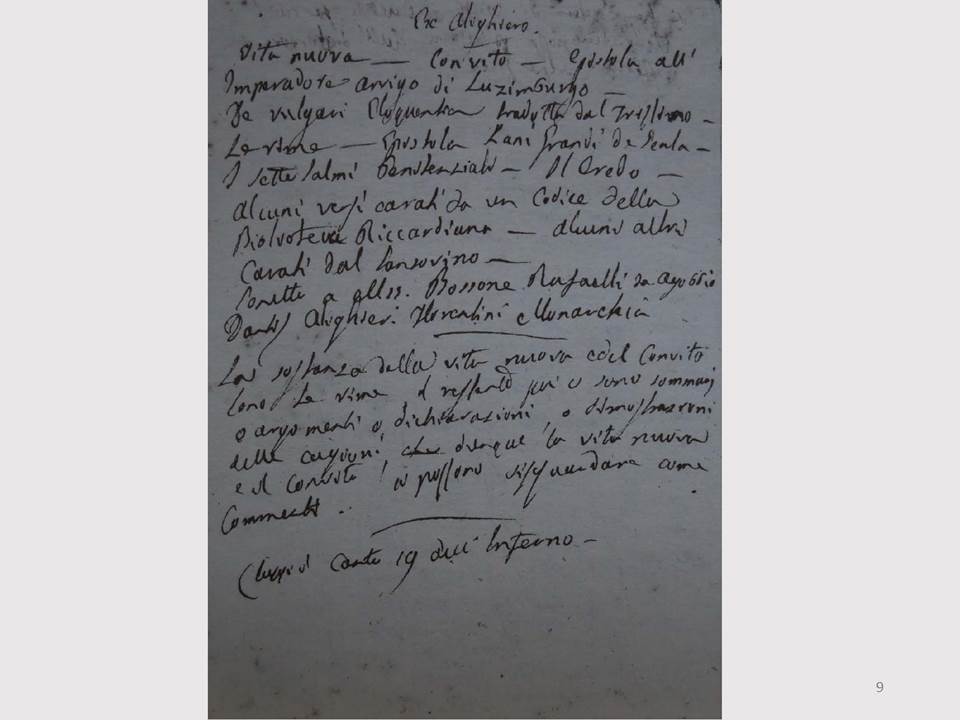 Ex Alighiero.
Vita nuova — Convito — Epistola all'
Imperadore Arrigo di Luzimburgo —
De vulgari Eloquentia tradotta dal Trissino —
Le rime — Epistola Cani Grandi de Scala —
I sette Salmi Penitenziali — Il Credo —
Alcuni versi cavati da un Codice della
Riccardiana — alcuni altri
Cavati dal Sansovino —
Sonetto a Bossone Rafaelli da Agobbio
Dantis Aligheri Florentini Monarchia
La sostanza della vita nuova e del Convito
sono le rime il restante poi o sono sommarj
o argomenti o dichiarazioni, o dimostrazioni
delle cagioni dunque la vita nuova
e il Convito si possono risguardare come
Commenti.
(Leggi il Canto 19 dell' Inferno —
9